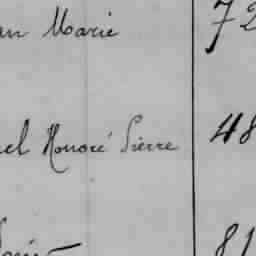 an Marie 72
el Honoré Pierre 48
81